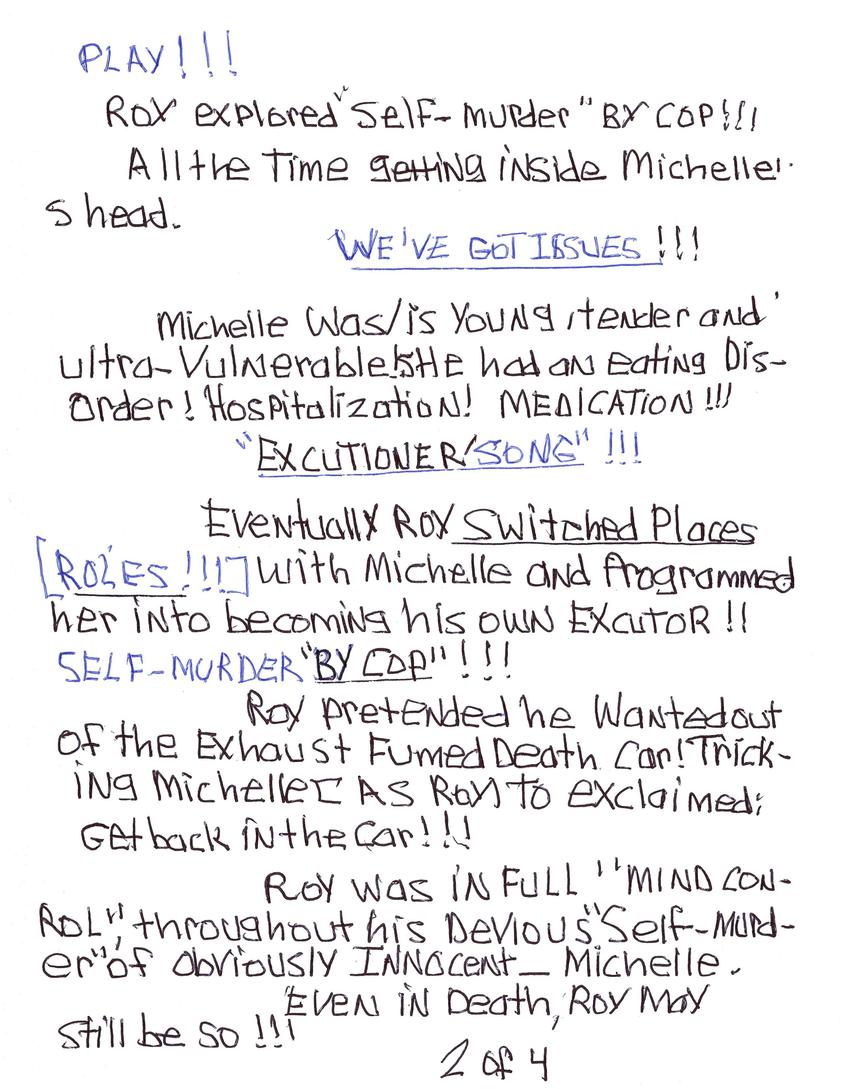 PLAY!!!
Roy explored "Self-murder" BY COP!!!
All the Time getting inside Michelle'
s head.
WE'VE GOT ISSUES!!!
Michelle Was/is Young, tender and
ultra-Vulnerable! SHE had an Eating Dis-
order! Hospitalization! MEDICATION!!!
"EXCUTIONER/SONG"!!!
Eventually Roy Switched Places
[ROLES!!!] with Michelle and Programmed
her into becoming his own EXCUTOR!!
SELF-MURDER "BY COP"!!!
Roy pretended he Wanted out
of the Exhaust Fumed Death Car! Trick-
ing Michelle[AS Roy] to exclaimed;
Get back in the Car!!!
Roy was in FULL "MIND CON-
ROL", throughout his Devious "Self-Murd-
er" of obviously INNOCENT_ Michelle.
EVEN in Death, Roy May
still be so!!!
2 of 4